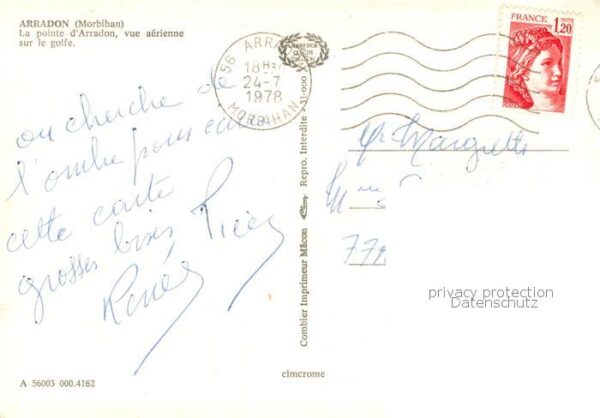 ARRADON (Morbihan)
La pointe d'Arradon, vue aérienne
sur le golfe.
56 ARRADON
18H
24-7
1978
MORBIHAN
FRANCE
1,20
POSTES
on cherche de
l'ombre pour
cette carte
grosses bises
Renée
Combier Imprimeur Mâcon
Repro. Interdite - 31-000
Mme
77
privacy protection
Datenschutz
cimcrome
A 56003 000.4162